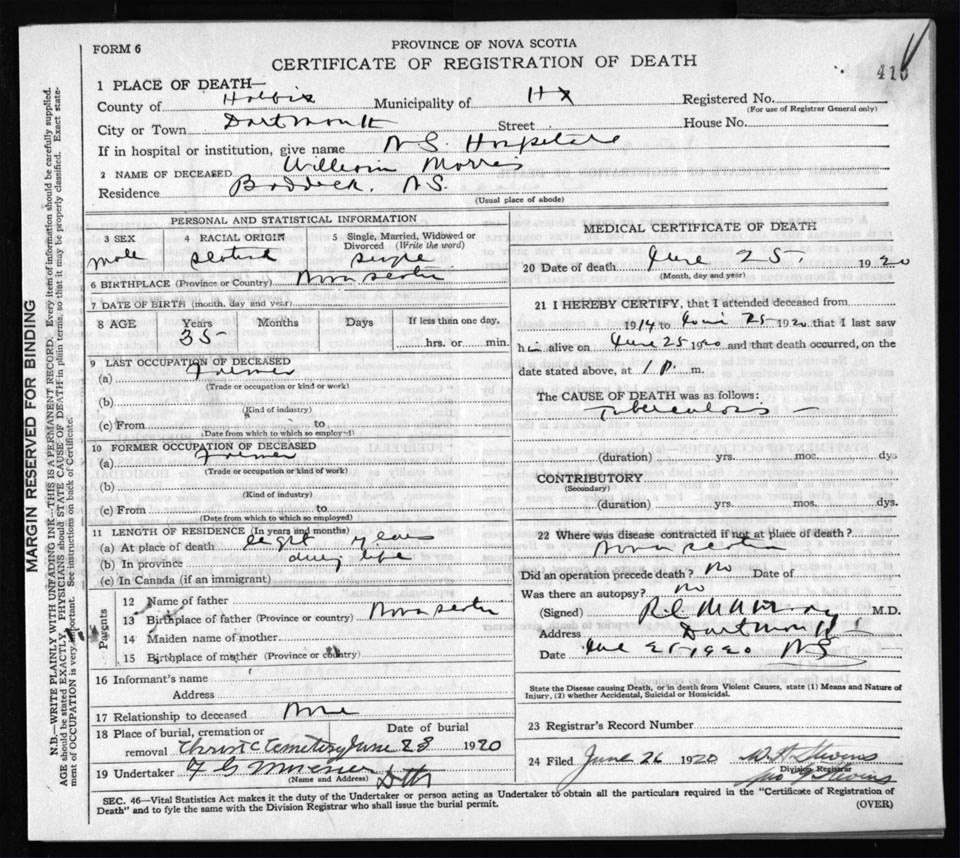 FORM 6
PROVINCE OF NOVA SCOTIA
CERTIFICATE OF REGISTRATION OF DEATH
1 PLACE OF DEATH
County of Halifax Municipality of Hx Registered No.
(For use of Registrar General only)
City or Town Dartmouth Street House No.
If in hospital or institution, give name N.S. Hospital
2 NAME OF DECEASED William Morris
Residence Baddeck. N.S.
(Usual place of abode)
MARGIN RESERVED FOR BINDING
N.B.—WRITE PLAINLY WITH UNFADING INK—THIS IS A PERMANENT RECORD. Every item of information should be carefully supplied.
AGE should be stated EXACTLY. PHYSICIANS should STATE CAUSE OF DEATH in plain terms, so that it may be properly classified. Exact state-
ment of OCCUPATION is very important. See instructions on back of certificate.
PERSONAL AND STATISTICAL INFORMATION
3 SEX 4 RACIAL ORIGIN 5 Single, Married, Widowed or
Divorced (Write the word)
male scotch single
6 BIRTHPLACE (Province or Country) Nova scotia
7 DATE OF BIRTH (month, day and year)
8 AGE Years Months Days If less than one day,
35 hrs. or min.
9 LAST OCCUPATION OF DECEASED
(a) Farmer
(Trade or occupation or kind or work)
(b)
(Kind of industry)
(c) From to
(Date from which to which so employed)
10 FORMER OCCUPATION OF DECEASED
(a) Farmer
(Trade or occupation or kind or work)
(b)
(Kind of industry)
(c) From to
(Date from which to which so employed)
11 LENGTH OF RESIDENCE (In years and months)
(a) At place of death eight years
(b) In province during life
(c) In Canada (if an immigrant)
Parents
12 Name of father
13 Birthplace of father (Province or country) Nova scotia
14 Maiden name of mother
15 Birthplace of mother (Province or country)
16 Informant's name
Address
17 Relationship to deceased None
18 Place of burial, cremation or Date of burial
removal Christ C Cemetery June 28 1920
19 Undertaker
(Name and Address)
MEDICAL CERTIFICATE OF DEATH
20 Date of death June 25. 1920
(Month, day and year)
21 I HEREBY CERTIFY, that I attended deceased from
1914 to June 25 1920 that I last saw
him alive on June 25 1920 and that death occurred, on the
date stated above, at 1 P. m.
The CAUSE OF DEATH was as follows:
Tuberculosis
(duration) yrs. mos. dys
CONTRIBUTORY
(Secondary)
(duration) yrs. mos. dys.
22 Where was disease contracted if not at place of death?
Nova scotia
Did an operation precede death? No Date of
Was there an autopsy? No
(Signed) M.D.
Address Dartmouth
Date June 25 1920 NS
State the Disease causing Death, or in death from Violent Causes, state (1) Means and Nature of
Injury, (2) whether Accidental, Suicidal or Homicidal.
23 Registrar's Record Number
24 Filed June 26 1920 W. H. Stevens
Division Registrar
SEC. 46—Vital Statistics Act makes it the duty of the Undertaker or person acting as Undertaker to obtain all the particulars required in the "Certificate of Registration of
Death" and to fyle the same with the Division Registrar who shall issue the burial permit. (OVER)